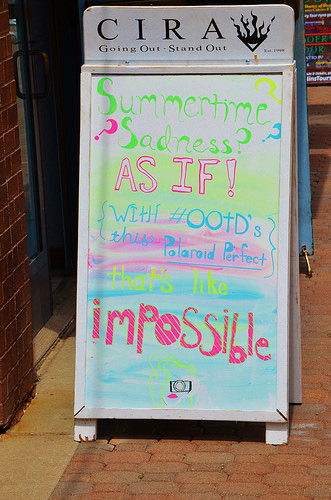 CIRA
Going Out · Stand Out
Est. 1998
Summertime
Sadness?
AS IF!
{With #OOtD's
this Polaroid Perfect}
that's like
impossible